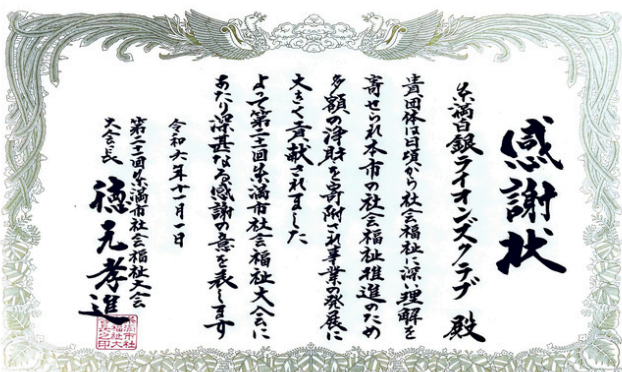 感謝状
糸満白銀ライオンズクラブ 殿
貴団体は日頃から社会福祉に深い理解を
寄せられ本市の社会福祉推進のため
多額の浄財を寄附され事業の発展に
大きく貢献されました
よって第二十一回糸満市社会福祉大会に
あたり深甚なる感謝の意を表します
令和六年十一月一日
第二十一回糸満市社会福祉大会
大会長 徳元孝進